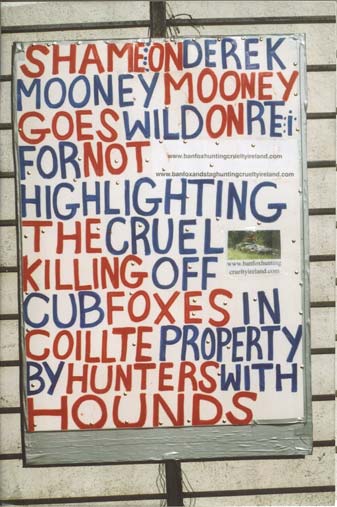 SHAME ON DEREK
MOONEY MOONEY
GOES WILD ON RTE:
FOR NOT
www.banfoxhuntingcrueltyireland.com
www.banfoxandstaghuntingcrueltyireland.com
HIGHLIGHTING
THE CRUEL
KILLING OFF
www.banfoxhunting
crueltyireland.com
CUB FOXES IN
COILLTE PROPERTY
BY HUNTERS WITH
HOUNDS